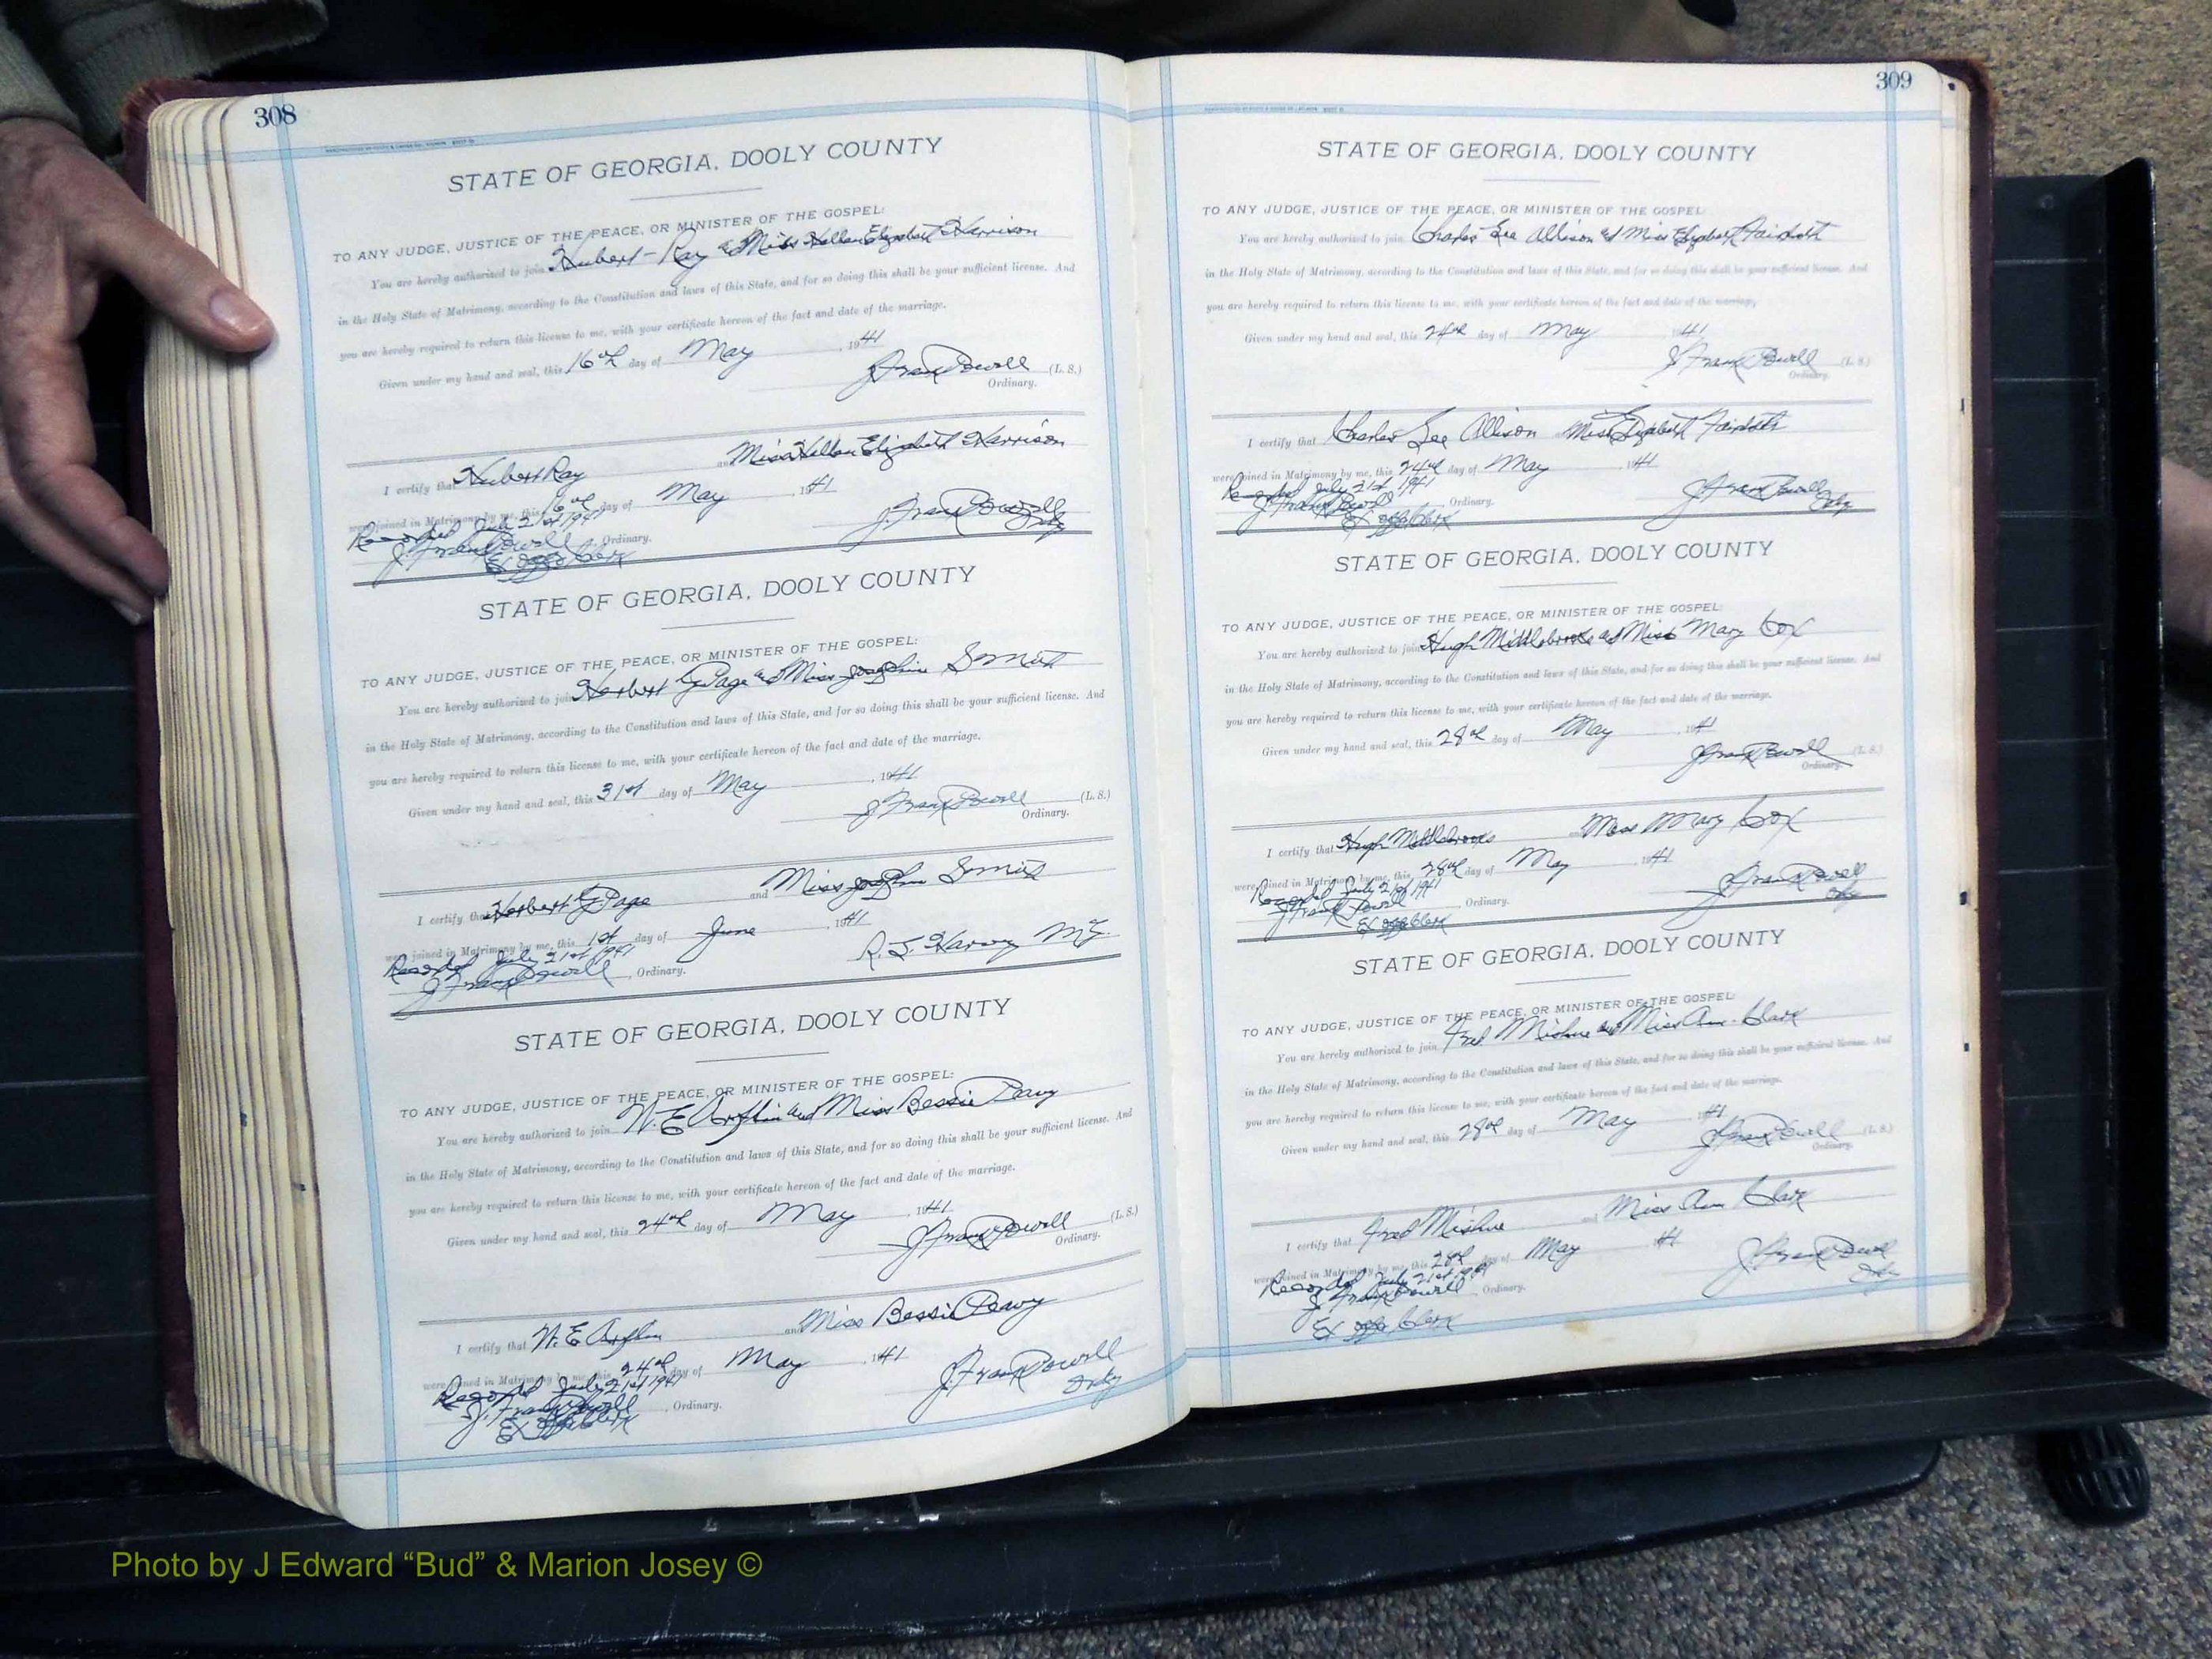 308
STATE OF GEORGIA, DOOLY COUNTY
TO ANY JUDGE, JUSTICE OF THE PEACE, OR MINISTER OF THE GOSPEL:
You are hereby authorized to join Hubert Ray and Miss Elizabeth Harrison
in the Holy State of Matrimony, according to the Constitution and laws of this State, and for so doing this shall be your sufficient license. And
you are hereby required to return this license to me, with your certificate hereon of the fact and date of the marriage.
Given under my hand and seal, this 16th day of May, 1941
J. Frank Powell (L. S.)
Ordinary.
I certify that Hubert Ray and Miss Elizabeth Harrison
were joined in Matrimony by me, this 16th day of May, 1941
Recorded July 21st 1941
J. Frank Powell, Ordinary. J. Frank Powell
Ex Offo Clerk Ordy
STATE OF GEORGIA, DOOLY COUNTY
TO ANY JUDGE, JUSTICE OF THE PEACE, OR MINISTER OF THE GOSPEL:
You are hereby authorized to join Herbert G. Page and Miss Josephine Smith
in the Holy State of Matrimony, according to the Constitution and laws of this State, and for so doing this shall be your sufficient license. And
you are hereby required to return this license to me, with your certificate hereon of the fact and date of the marriage.
Given under my hand and seal, this 31st day of May, 1941
J. Frank Powell (L. S.)
Ordinary.
I certify that Herbert G. Page and Miss Josephine Smith
were joined in Matrimony by me, this 1st day of June, 1941
Recorded July 21st 1941
J. Frank Powell, Ordinary. R. J. Harvey M.G.
STATE OF GEORGIA, DOOLY COUNTY
TO ANY JUDGE, JUSTICE OF THE PEACE, OR MINISTER OF THE GOSPEL:
You are hereby authorized to join W. E. and Miss Bessie Peavy
in the Holy State of Matrimony, according to the Constitution and laws of this State, and for so doing this shall be your sufficient license. And
you are hereby required to return this license to me, with your certificate hereon of the fact and date of the marriage.
Given under my hand and seal, this 24th day of May, 1941
J. Frank Powell (L. S.)
Ordinary.
I certify that W. E. and Miss Bessie Peavy
were joined in Matrimony by me, this 24th day of May, 1941
Recorded July 21st 1941
J. Frank Powell, Ordinary. J. Frank Powell
Ex Offo Clerk Ordy
309
STATE OF GEORGIA, DOOLY COUNTY
TO ANY JUDGE, JUSTICE OF THE PEACE, OR MINISTER OF THE GOSPEL:
You are hereby authorized to join Charles Lee Allison and Miss Elizabeth
in the Holy State of Matrimony, according to the Constitution and laws of this State, and for so doing this shall be your sufficient license. And
you are hereby required to return this license to me, with your certificate hereon of the fact and date of the marriage.
Given under my hand and seal, this 24th day of May 1941
J. Frank Powell (L. S.)
Ordinary.
I certify that Charles Lee Allison Miss Elizabeth
were joined in Matrimony by me, this 24th day of May, 1941
Recorded July 21st 1941
J. Frank Powell, Ordinary. J. Frank Powell
Ex Offo Clerk Ordy
STATE OF GEORGIA, DOOLY COUNTY
TO ANY JUDGE, JUSTICE OF THE PEACE, OR MINISTER OF THE GOSPEL:
You are hereby authorized to join Hugh Middlebrooks and Miss Mary Cox
in the Holy State of Matrimony, according to the Constitution and laws of this State, and for so doing this shall be your sufficient license. And
you are hereby required to return this license to me, with your certificate hereon of the fact and date of the marriage.
Given under my hand and seal, this 28th day of May, 1941
J. Frank Powell (L. S.)
Ordinary.
I certify that Hugh Middlebrooks and Miss Mary Cox
were joined in Matrimony by me, this 28th day of May, 1941
Recorded July 21st 1941
J. Frank Powell, Ordinary. J. Frank Powell
Ex Offo Clerk Ordy
STATE OF GEORGIA, DOOLY COUNTY
TO ANY JUDGE, JUSTICE OF THE PEACE, OR MINISTER OF THE GOSPEL:
You are hereby authorized to join Fred Mishue and Miss Ann Clark
in the Holy State of Matrimony, according to the Constitution and laws of this State, and for so doing this shall be your sufficient license. And
you are hereby required to return this license to me, with your certificate hereon of the fact and date of the marriage.
Given under my hand and seal, this 28th day of May, 1941
J. Frank Powell (L. S.)
Ordinary.
I certify that Fred Mishue and Miss Ann Clark
were joined in Matrimony by me, this 28th day of May, 1941
Recorded July 21st 1941
J. Frank Powell, Ordinary. J. Frank Powell
Ex Offo Clerk Ordy
Photo by J Edward “Bud” & Marion Josey ©